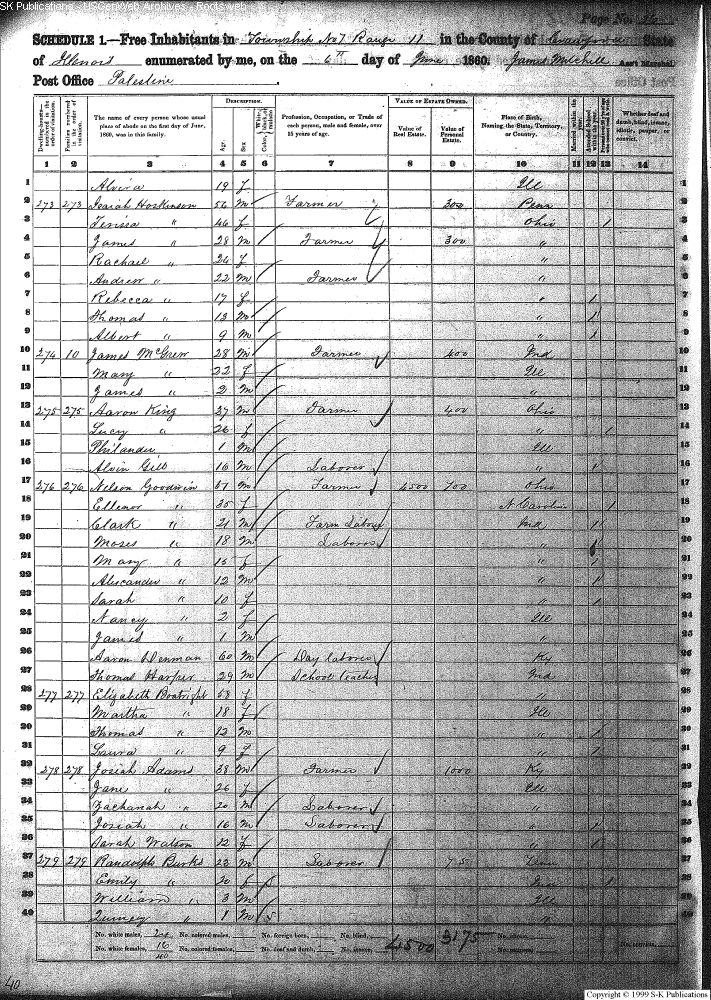 SK Publications - USGenWeb Archives - Rootsweb
Page No. 26
SCHEDULE 1.—Free Inhabitants in Township No 7 Range 11 in the County of Crawford State
of Illinois enumerated by me, on the 6th day of June 1860. James Mitchell Ass't Marshal.
Post Office Palestine.
Dwelling-houses—numbered in the order of visitation. Families numbered in the order of visitation. The name of every person whose usual place of abode on the first day of June, 1860, was in this family. DESCRIPTION. Age. Sex. Color, Profession, Occupation, or Trade of each person, male and female, over 15 years of age. VALUE OF ESTATE OWNED. Value of Real Estate. Value of Personal Estate. Place of Birth, Naming the State, Territory, or Country. Married within the year. Whether deaf and dumb, blind, insane, idiotic, pauper, or convict.
1 2 3 4 5 6 7 8 9 10 11 12 13 14
1 Alvira 19 f Ill 1
2 273 273 Isaiah Hoskinson 56 m Farmer 300 Penn 2
3 Terissa " 46 f Ohio / 3
4 James " 28 m Farmer 300 " 4
5 Rachael " 24 f " 5
6 Andrew " 22 m Farmer " 6
7 Rebecca " 17 f " 1 7
8 Thomas " 13 m " 1 8
9 Albert " 9 m " 1 9
10 274 10 James McGrew 28 m Farmer 400 Ind 10
11 Mary " 22 f Ill 11
12 James " 2 m " 12
13 275 275 Aaron King 37 m Farmer 400 Ohio 13
14 Lucy " 26 f " 1 14
15 Philander 1 m Ill 15
16 Alvin Gill 16 m Laborer " 1 16
17 276 276 Nelson Goodwin 57 m Farmer 4500 700 Ohio 17
18 Ellenor " 35 f N Carolina 1 18
19 Clark " 21 m Farm Labour Ind 1 19
20 Moses " 18 m Laborer " 20
21 Mary " 15 f " 1 21
22 Alexander " 12 m " 1 22
23 Sarah " 10 f " 1 23
24 Nancy " 2 f Ill 24
25 James " 1 m " 25
26 Aaron Denman 60 m Day laborer Ky 26
27 Thomas Harper 29 m School teacher Ind 27
28 277 277 Elizabeth Boatright 58 f 28
29 Martha " 18 f Ill 29
30 Thomas " 12 m 1 30
31 Laura " 9 f 1 31
32 278 278 Josiah Adams 38 m Farmer 1000 Ky 32
33 Jane " 26 f Ill 33
34 Zachariah " 20 m Laborer " 34
35 Josiah " 16 m Laborer " 1 35
36 Sarah Watson 12 f " 1 36
37 279 279 Randolph Burks 23 m Laborer 75 Tenn 37
38 Emily " 20 f Ind 1 38
39 William " 3 m Ill 39
40 Quincy " 1 m " 40
No. white males, 24 No. colored males, No. foreign born, No. blind,
No. white females, 16 No. colored females, No. deaf and dumb, No. insane, 4500 3175 No. idiotic, No. paupers, No. convicts,
40
40
Copyright © 1999 S-K Publications